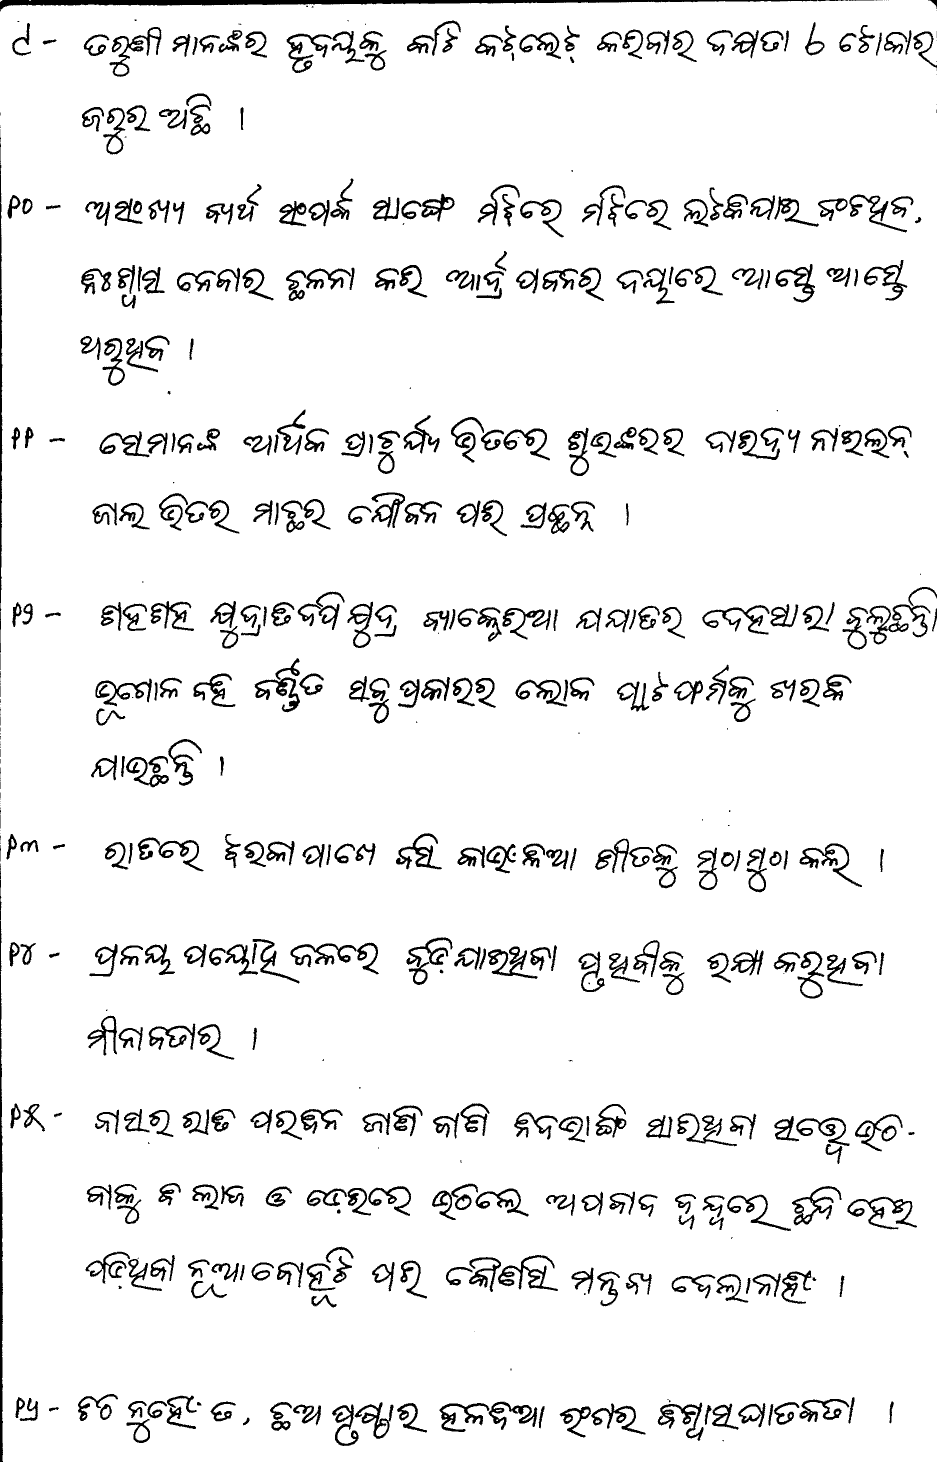 ୯ - ତରୁଣୀ ମାନଙ୍କର ହୃଦୟକୁ କାଟି କଟ୍‌ଲେଟ୍ କରିବାର ଦକ୍ଷତା ଓ ଟୋକାର
ଜରୁର ଅଛି ।
୧୦ - ଅସଂଖ୍ୟ ବ୍ୟର୍ଥ ସଂପର୍କ ସାଙ୍ଗେ ମଝିରେ ମଝିରେ ଲଟକିଯାଇ ବଂଚିଥିବ,
ନିଃଶ୍ୱାସ ନେବାର ଛଳନା କରି ଆର୍ଦ୍ର ପବନର ଦୟାରେ ଆସ୍ତେ ଆସ୍ତେ
ଥରୁଥିବ ।
୧୧ - ସେମାନଙ୍କ ଆର୍ଥିକ ପ୍ରାଚୁର୍ଯ୍ୟ ଭିତରେ ଶୁଭଙ୍କରର ଦାରିଦ୍ର୍ୟ ନାଇଲନ୍
ଜାଲ ଭିତର ମାଛର ଯୌବନ ପରି ପ୍ରଚ୍ଛନ୍ନ ।
୧୨ - ଶହଶହ କ୍ଷୁଦ୍ରାତିକ୍ଷୁଦ୍ର ବ୍ୟାକ୍ଟେରିଆ ଯଯାତିର ଦେହସାରା ବୁଲୁଛନ୍ତି
ଭୂଗୋଳ ବହି ବର୍ଣ୍ଣିତ ସବୁ ପ୍ରକାରର ଲୋକ ପ୍ଲାଟଫର୍ମକୁ ଖରକି
ଯାଉଛନ୍ତି ।
୧୩ - ରାତିରେ ଝରକା ପାଖେ ବସି କାଉଁଳିଆ ଶୀତକୁ ମୁଠା ମୁଠା କଲି ।
୧୪ - ପ୍ରଳୟ ପୟୋଧି ଜଳରେ ବୁଡ଼ିଯାଇଥିବା ପୃଥିବୀକୁ ରକ୍ଷା କରୁଥିବା
ମୀନାବତାର ।
୧୫ - ବାସର ରାତି ପରଦିନ ଜାଣି ଜାଣି ନିଦଭାଙ୍ଗି ସାରିଥିବା ସତ୍ତ୍ୱେ ଉଠି-
ବାକୁ ବି ଲାଜ ଓ ଡେରିରେ ଉଠିଲେ ଅପବାଦ ଦ୍ୱନ୍ଦ୍ୱରେ ଛନ୍ଦି ହେଇ
ପଡ଼ିଥିବା ନୂଆ ବୋହୂଟି ପରି କୌଣସି ମନ୍ତବ୍ୟ ଦେଲାନାହିଁ ।
୧୬ - ଚିଠି ନୁହେଁ ତ, ଛଅ ପୃଷ୍ଠାର ହଳଦିଆ ରଂଗର ବିଶ୍ୱାସଘାତକତା ।